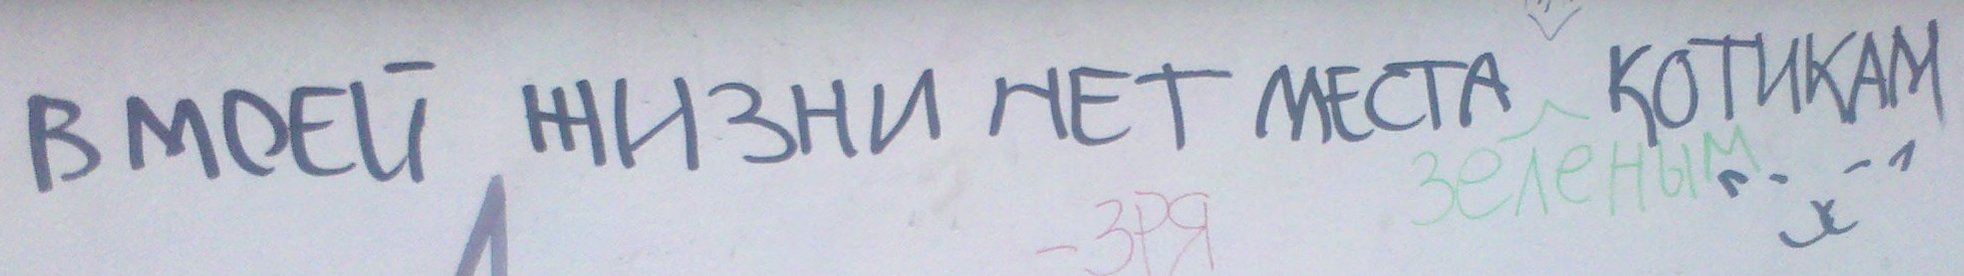 В МОЕЙ ЖИЗНИ НЕТ МЕСТА КОТИКАМ
зелёным
- ЗРЯ